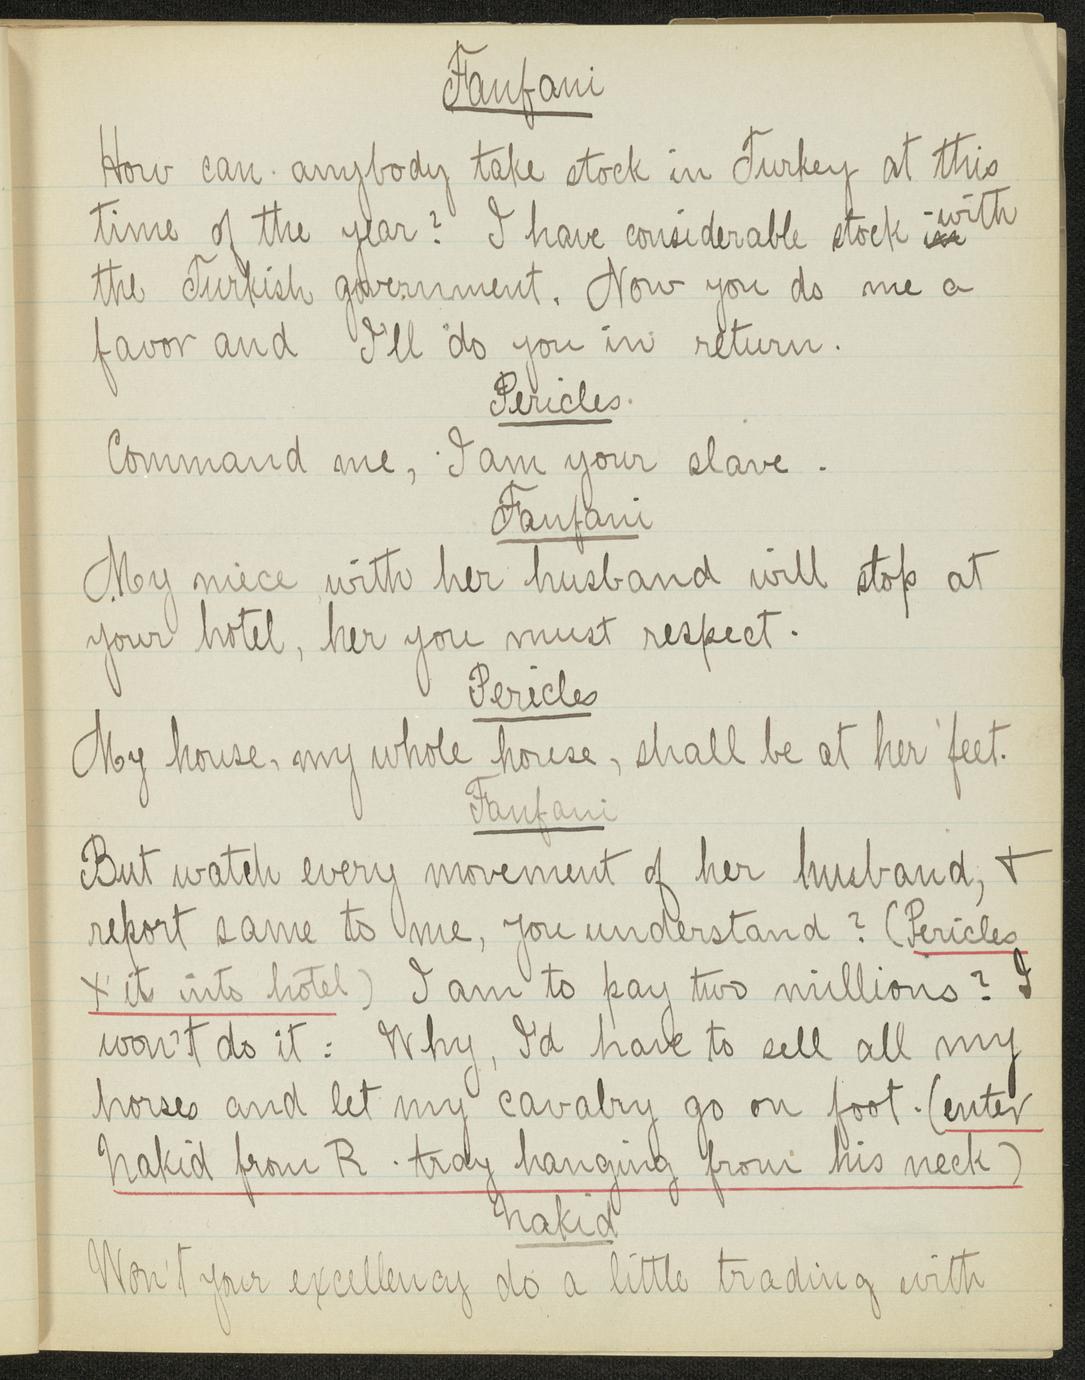 Fanfani
How can anybody take stock in Turkey at this
time of the year? I have considerable stock in with
the Turkish government. Now you do me a
favor and I'll do you in return.
Pericles.
Command me, I am your slave.
Fanfani
My niece with her husband will stop at
your hotel, her you must respect.
Pericles
My house, my whole house, shall be at her feet.
Fanfani
But watch every movement of her husband, &
report same to me, you understand? (Pericles
X it into hotel) I am to pay two millions? I
won't do it: Why, I'd have to sell all my
horses and let my cavalry go on foot. (enter
Nakid from R. tray hanging from his neck)
Nakid
Won't your excellency do a little trading with